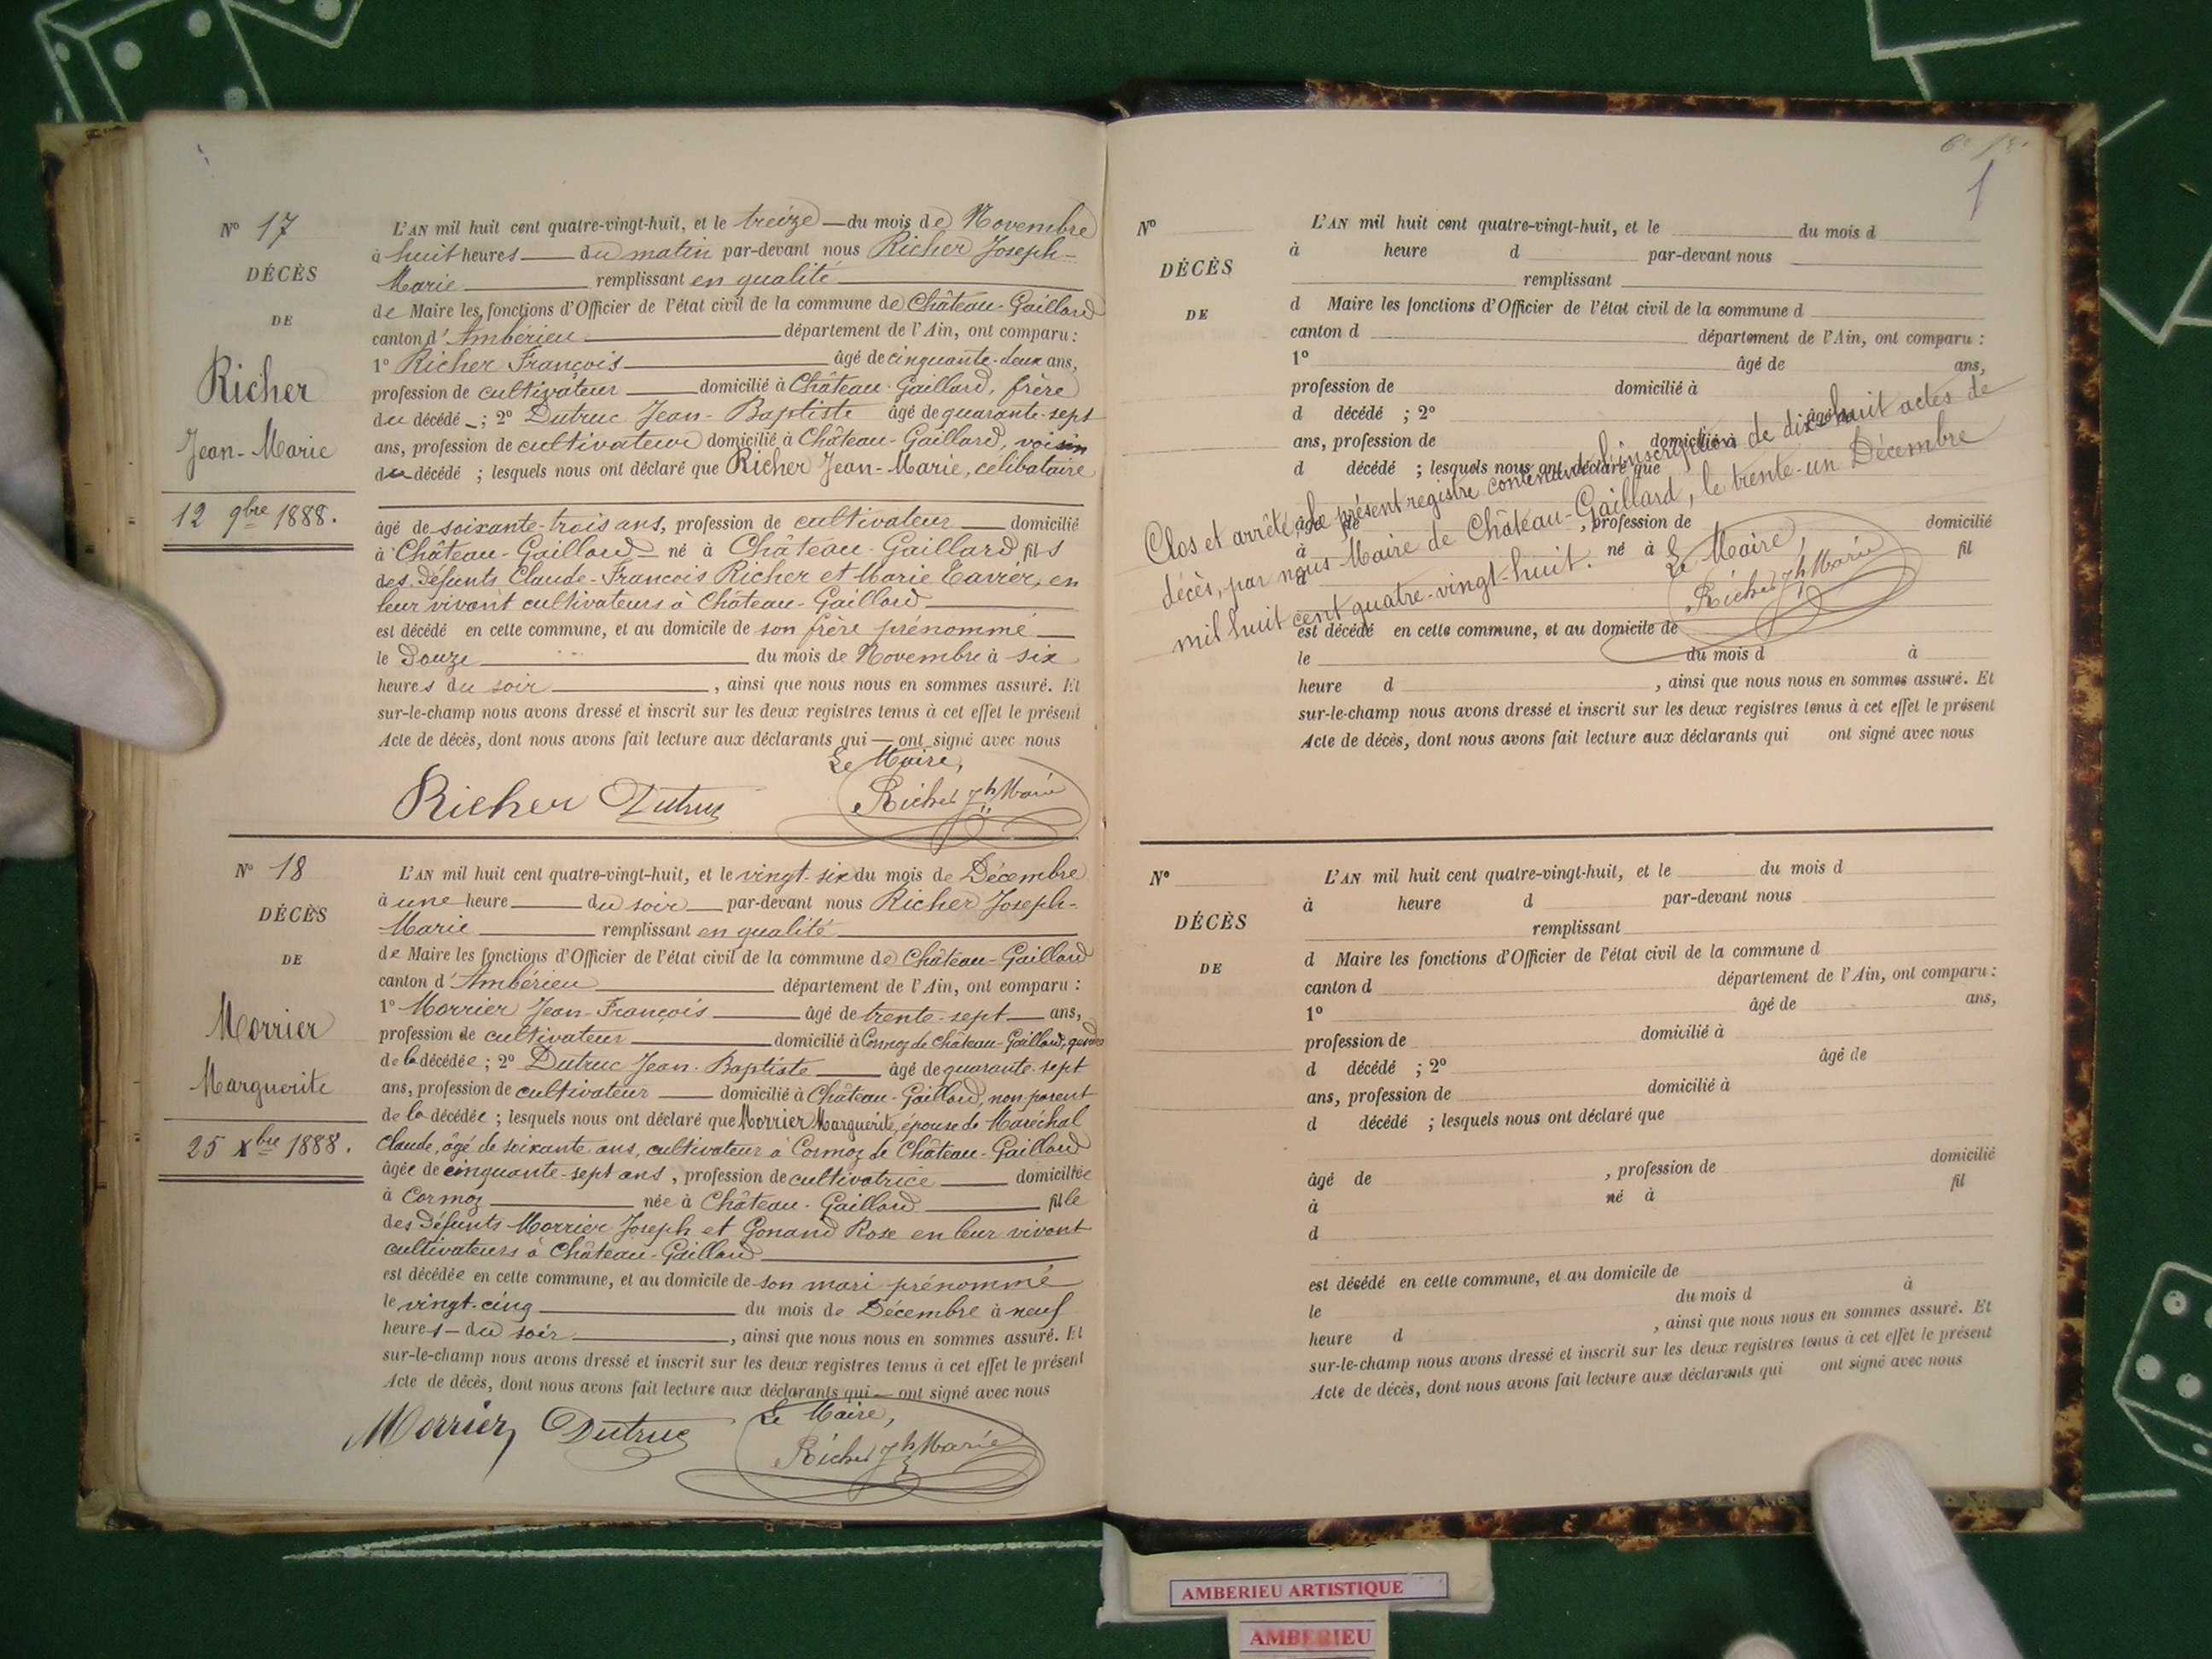 Nº 17
DÉCÈS
DE
Richer
Jean-Marie
12 9bre 1888.
L'AN mil huit cent quatre-vingt-huit, et le treize — du mois de Novembre
à huit heures — du matin par-devant nous Richer Joseph-
Marie — remplissant en qualité
de Maire les fonctions d'Officier de l'état civil de la commune de Château-Gaillard
canton d'Ambérieu — département de l'Ain, ont comparu :
1º Richer François — âgé de cinquante-deux ans,
profession de cultivateur — domicilié à Château-Gaillard, frère
du décédé — ; 2º Dutruc Jean-Baptiste âgé de quarante-sept
ans, profession de cultivateur domicilié à Château-Gaillard, voisin
du décédé ; lesquels nous ont déclaré que Richer Jean-Marie, célibataire
âgé de soixante-trois ans, profession de cultivateur — domicilié
à Château-Gaillard né à Château-Gaillard fils
des défunts Claude-François Richer et Marie en
leur vivant cultivateurs à Château-Gaillard
est décédé en cette commune, et au domicile de son frère prénommé
le douze — du mois de Novembre à six
heures du soir — , ainsi que nous nous en sommes assuré. Et
sur-le-champ nous avons dressé et inscrit sur les deux registres tenus à cet effet le présent
Acte de décès, dont nous avons fait lecture aux déclarants qui — ont signé avec nous
Le Maire,
Richer Dutruc Richer Jh Marie
Nº 18
DÉCÈS
DE
Morrier
Marguerite
25 Xbre 1888.
L'AN mil huit cent quatre-vingt-huit, et le vingt-six du mois de Décembre
à une heure — du soir — par-devant nous Richer Joseph-
Marie — remplissant en qualité
de Maire les fonctions d'Officier de l'état civil de la commune de Château-Gaillard
canton d'Ambérieu — département de l'Ain, ont comparu :
1º Morrier Jean-François — âgé de trente-sept — ans,
profession de cultivateur — domicilié à Cormoz de Château-Gaillard,
de la décédée ; 2º Dutruc Jean-Baptiste — âgé de quarante-sept
ans, profession de cultivateur — domicilié à Château-Gaillard, non parent
de la décédée ; lesquels nous ont déclaré que Morrier Marguerite, épouse de Maréchal
Claude, âgé de soixante ans, cultivateur à Cormoz de Château-Gaillard
âgée de cinquante-sept ans, profession de cultivatrice — domiciliée
à Cormoz — née à Château-Gaillard — fille
des défunts Morrier Joseph et Gonand Rose en leur vivant
cultivateurs à Château-Gaillard
est décédée en cette commune, et au domicile de son mari prénommé
le vingt-cinq — du mois de Décembre à neuf
heures — du soir — , ainsi que nous nous en sommes assuré. Et
sur-le-champ nous avons dressé et inscrit sur les deux registres tenus à cet effet le présent
Acte de décès, dont nous avons fait lecture aux déclarants qui — ont signé avec nous
Le Maire,
Morrier Dutruc Richer Jh Marie
Nº
DÉCÈS
DE
L'AN mil huit cent quatre-vingt-huit, et le du mois d
à heure d par-devant nous
remplissant
d Maire les fonctions d'Officier de l'état civil de la commune d
canton d département de l'Ain, ont comparu :
1º âgé de ans,
profession de domicilié à
d décédé ; 2º âgé de
ans, profession de domicilié à
d décédé ; lesquels nous ont déclaré que
âgé de , profession de domicilié
à né à fil
d
Clos et arrêté, le présent registre contenant l'inscription de dix-huit actes de
décès, par nous Maire de Château-Gaillard, le trente-un Décembre
mil huit cent quatre-vingt-huit.
Le Maire,
Richer Jh Marie
est décédé en cette commune, et au domicile de
le du mois d à
heure d , ainsi que nous nous en sommes assuré. Et
sur-le-champ nous avons dressé et inscrit sur les deux registres tenus à cet effet le présent
Acte de décès, dont nous avons fait lecture aux déclarants qui ont signé avec nous
Nº
DÉCÈS
DE
L'AN mil huit cent quatre-vingt-huit, et le du mois d
à heure d par-devant nous
remplissant
d Maire les fonctions d'Officier de l'état civil de la commune d
canton d département de l'Ain, ont comparu :
1º âgé de ans,
profession de domicilié à
d décédé ; 2º âgé de
ans, profession de domicilié à
d décédé ; lesquels nous ont déclaré que
âgé de , profession de domicilié
à né à fil
d
est décédé en cette commune, et au domicile de
le du mois d à
heure d , ainsi que nous nous en sommes assuré. Et
sur-le-champ nous avons dressé et inscrit sur les deux registres tenus à cet effet le présent
Acte de décès, dont nous avons fait lecture aux déclarants qui ont signé avec nous
AMBERIEU ARTISTIQUE
AMBERIEU